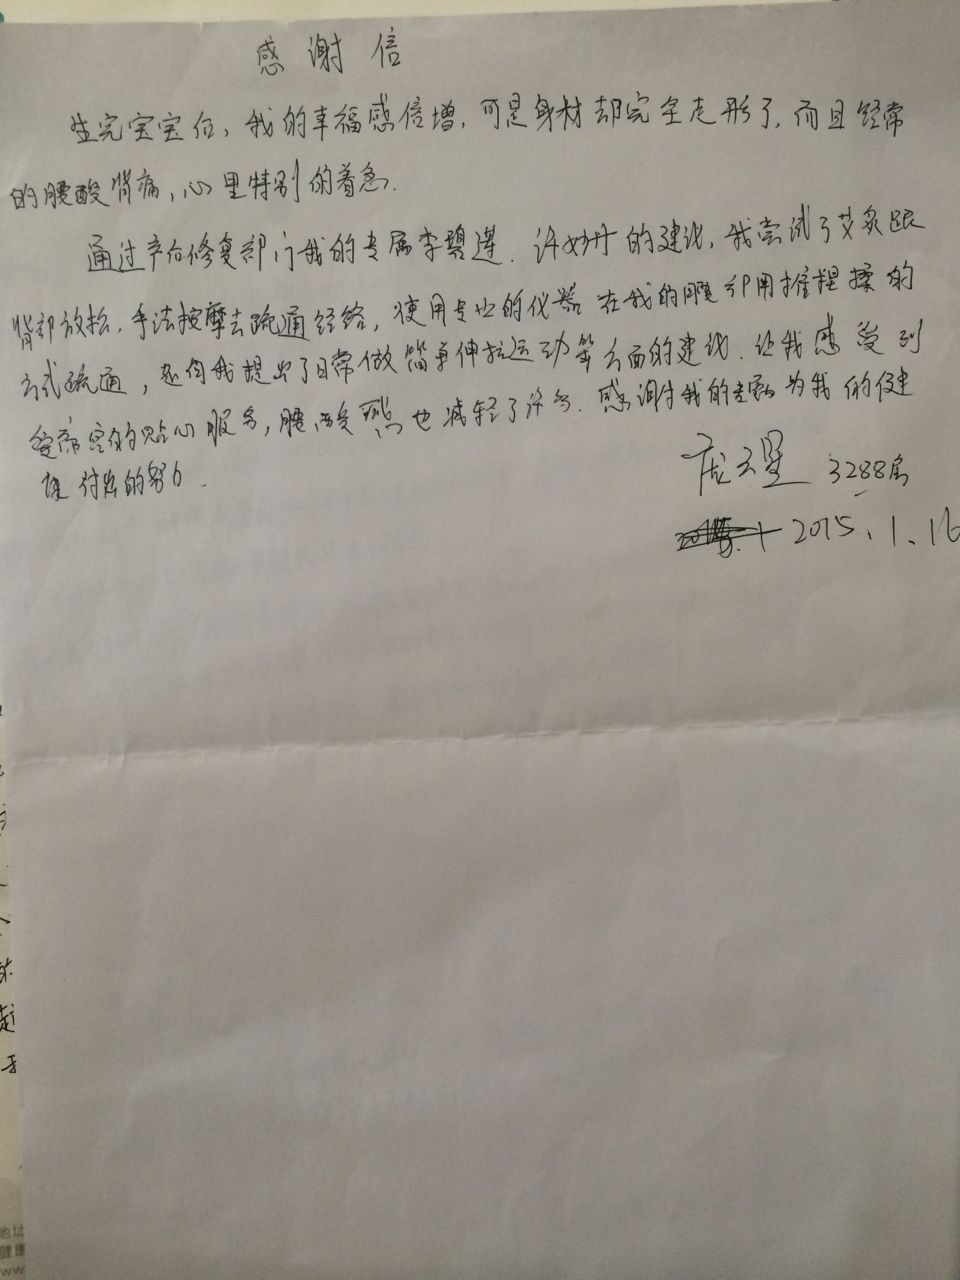 感谢信
生完宝宝后，我的幸福感倍增，可是身材却完全走形了，而且经常
的腰酸背痛，心里特别的着急.
通过产后修复部门我的专属李碧莲．许妙丹的建议，我尝试了艾灸跟
背部放松．手法按摩去疏通经络，使用专业的仪器在我的腰部用推捏揉的
方式疏通，还向我提出了日常做简单伸拉运动等方面的建议．让我感受到
爱帝宫的贴心服务，腰酸感也减轻了许多．感谢我的专属为我的健
康付出的努力．
3288房
2015.1.16
地址
健康
www